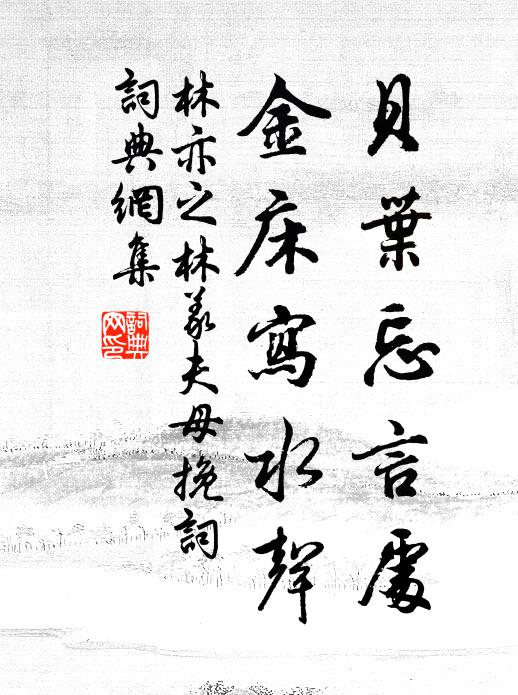 貝葉忘言處
金床寫水聲
林亦之林義夫母挽詞
詞典網集
詞典網印